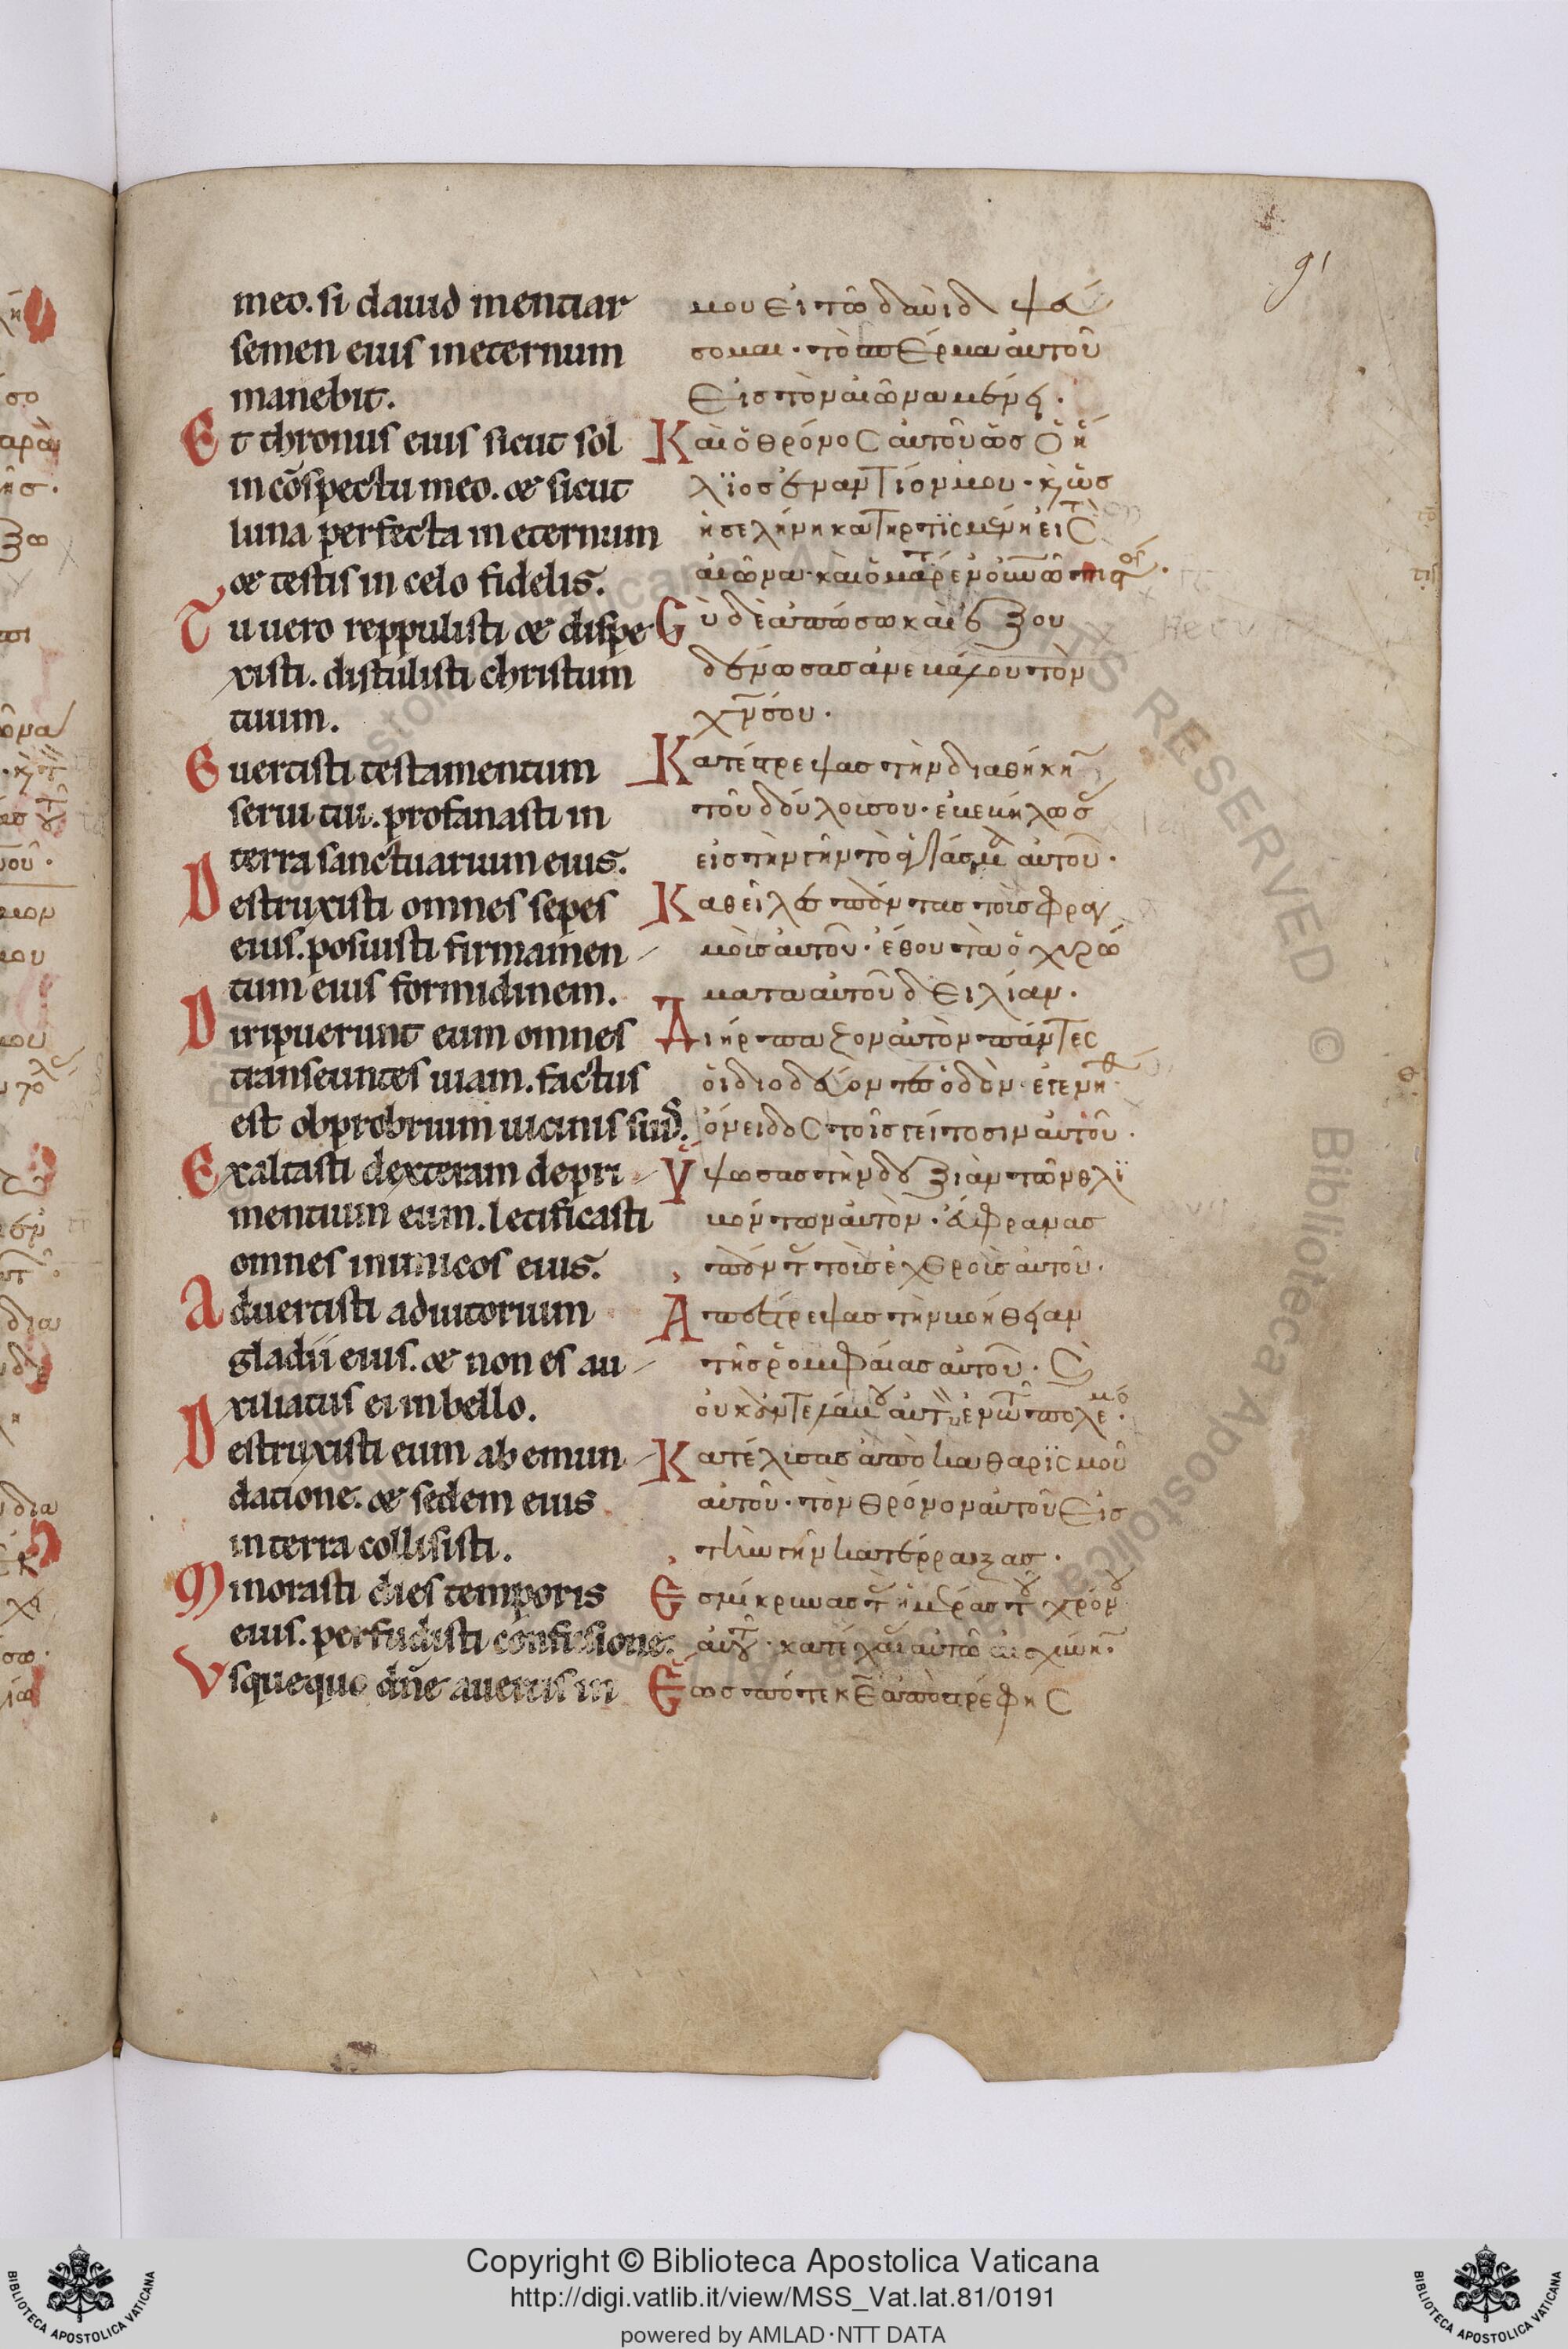 91
meo. si dauid mentiar
semen eius in eternum
manebit.
Et thronus eius sicut sol
in cōspectu meo. & sicut
luna perfecta in eternum
& testis in celo fidelis.
Tu uero reppulisti & dispe
xisti. distulisti christum
tuum.
Euertisti testamentum
serui tui. profanasti in
terra sanctuarium eius.
Destruxisti omnes sepes
eius. posuisti firmamen
tum eius formidinem.
Diripuerunt eum omnes
transeuntes uiam. factus
est obprobrium uicinis suis.
Exaltasti dexteram depri
mentium eum. letificasti
omnes inimicos eius.
Aduertisti adiutorium
gladii eius. & non es au
xiliatus ei in bello.
Destruxisti eum ab emun
datione. & sedem eius
in terra collisisti.
Minorasti dies temporis
eius. perfudisti confusione.
Vsquequo dn̄e auertis in
μου εἰ τῶ δαυὶδ ψεύ
σομαι· τὸ σπέρμα αὐτοῦ
εἰς τὸν αἰῶνα μένει·
Καὶ ὁ θρόνος αὐτοῦ ὡς ὁ ἥ
λϊος ἐναντίόν μου· κ̀ ὡς
ἡ σελήνη κατηρτϊσμένη εἰς
αἰῶνα· καὶ ὁ
Σὺ δὲ ἀπώσω καὶ ἐξου
δένωσας ἀνεβάλου τὸν
χν̄ σου·
Κατέστρεψας τὴν διαθήκη
τοῦ δούλοι σου· ἐβεβήλωσ
εἰς τὴν γῆν τὸ ἁγίασμα αὐτοῦ·
Καθεῖλες πάντας τοὶς φραγ
μοὶς αὐτοῦ· ἔθου τὰ ὀχυρώ
ματα αὐτοῦ δειλίαν·
Διήρπαζον αὐτὸν πάντες
οἱ διοδεύον
ὄνειδος τοῖς γείτοσιν αὐτοῦ·
Ὕψωσας τὴν δεξιὰν τῶν θλϊ
βόντων αὐτόν· εὔφρανας
τοὶς ἐχθροὶς αὐτοῦ·
Ἀπέστρεψας τὴν βοήθειαν
τῆς ῥομφαίας αὐτοῦ·
Κατέλισας ἀπὸ καθαρϊσμοῦ
αὐτοῦ· τὸν θρόνον αὐτοῦ εἰς
τὴν γῆν κατέρραξας·
Ἐσμίκρινας
Ἕως πότε κε̄ ἀποστρέφης
Copyright © Biblioteca Apostolica Vaticana
http://digi.vatlib.it/view/MSS_Vat.lat.81/0191
powered by AMLAD·NTT DATA